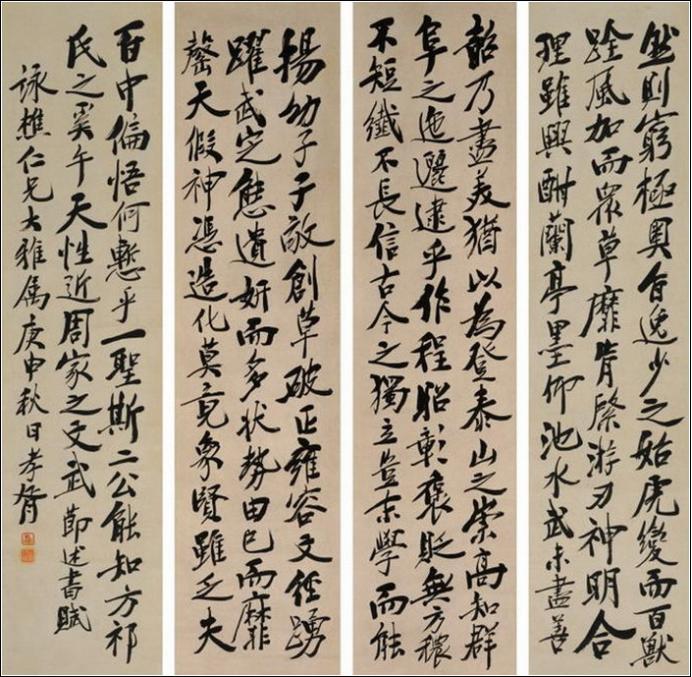 然則窮極奧旨逸少之始虎變而百獸
跧風加而眾草靡肯綮游刃神明合
理雖興酣蘭亭墨仰池水武未盡善
韶乃盡美猶以為登泰山之崇高知群
阜之迤邐逮乎作程昭彰褒貶無方穠
不短纖不長信古今之獨立豈末學而能
揚幼子子敬創草破正雍容文經踴
躍武定態遺妍而多狀勢由己而靡
罄天假神憑造化莫竟象賢雖乏夫
百中偏悟何慙乎一聖斯二公能知方祁
氏之奚午天性近周家之文武節述書賦
詠樵仁兄大雅属庚申秋日孝胥